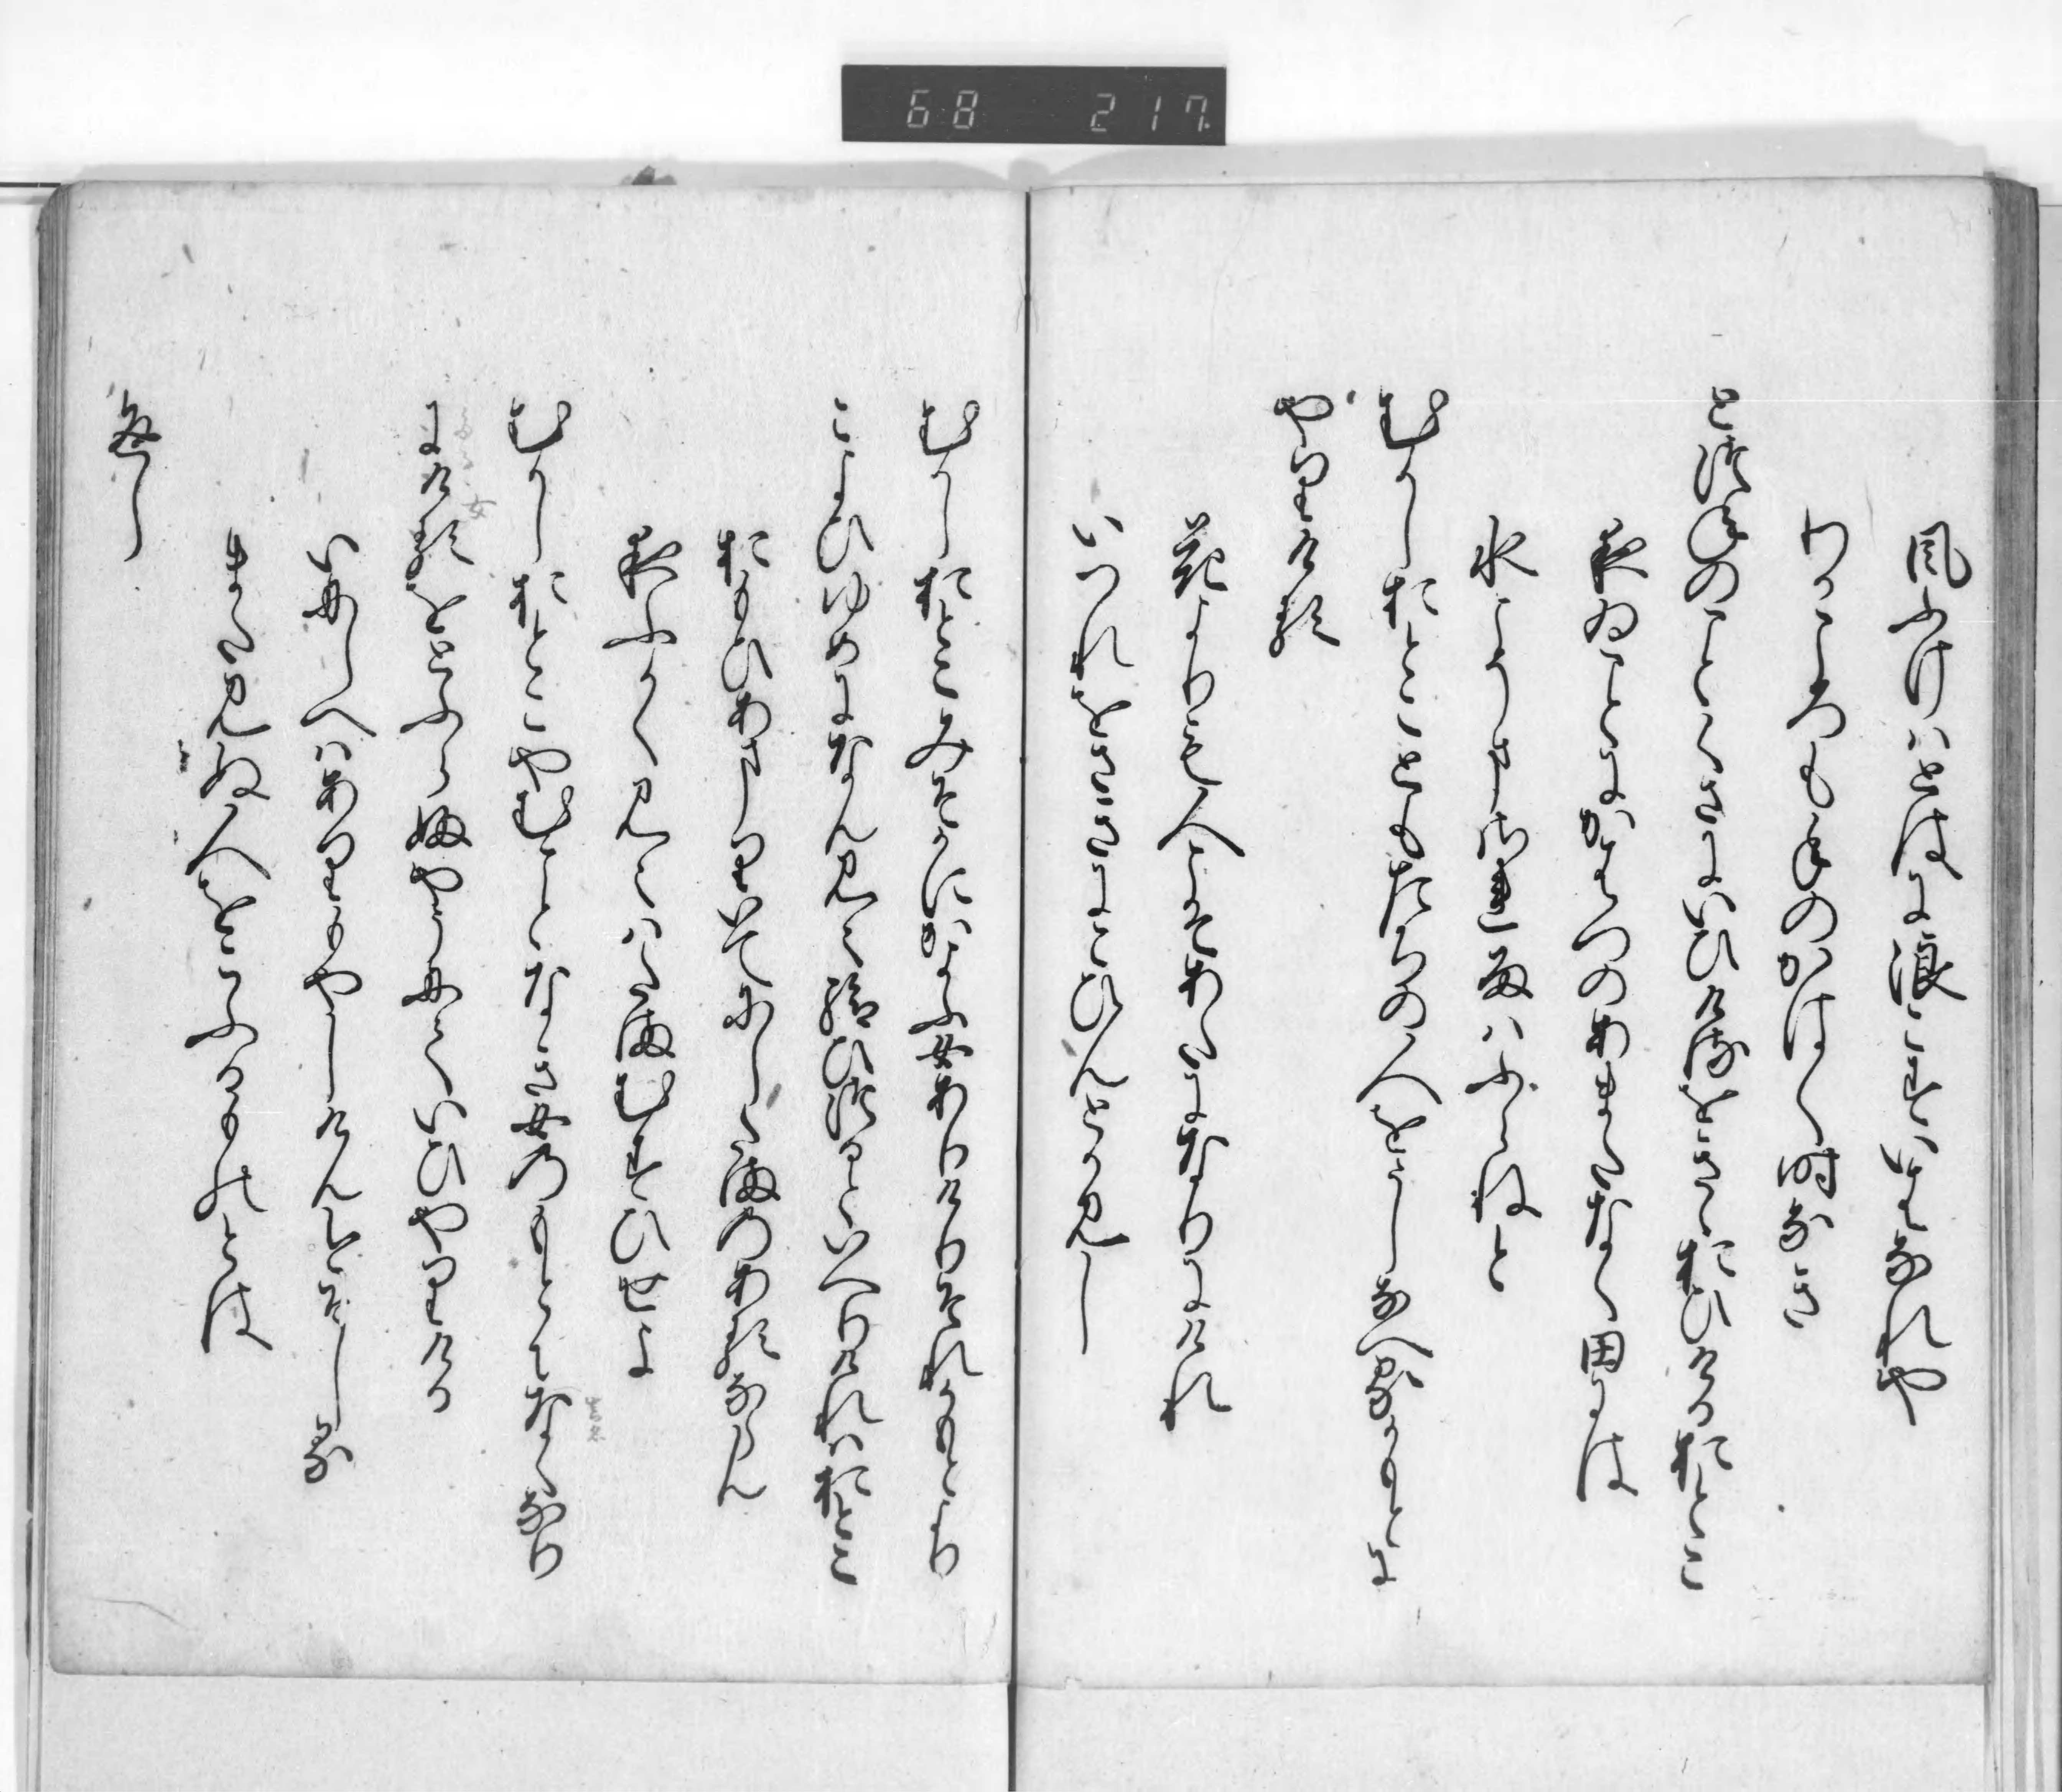 68 217
風ふけはとはに浪こすいはなれや
わかころも手のかはく時なき
と常のことくさにいひけるをきゝおひけるおとこ
夜ゐことにかはつのあまたなく田には
水こそまされ雨はふらねと
むかしおとこともたちの人をうしなへるかもとに
やりける
花よりも人こそあたになりにけれ
いつれをさきにこひんとか見し
むかしおとこみそかにかよふ女ありけりそれかもとより
こよひゆめになん見え給ひつるといへりけれはおとこ
おもひあまりいてにしたまのあるならん
夜ふかく見えはたまむすひせよ
むかしおとこやむことなき女のもとになくなり
にけるをとふらふやうにていひやりける
いにしへはありもやしけんいまそしる
また見ぬ人をこふるものとは
返し